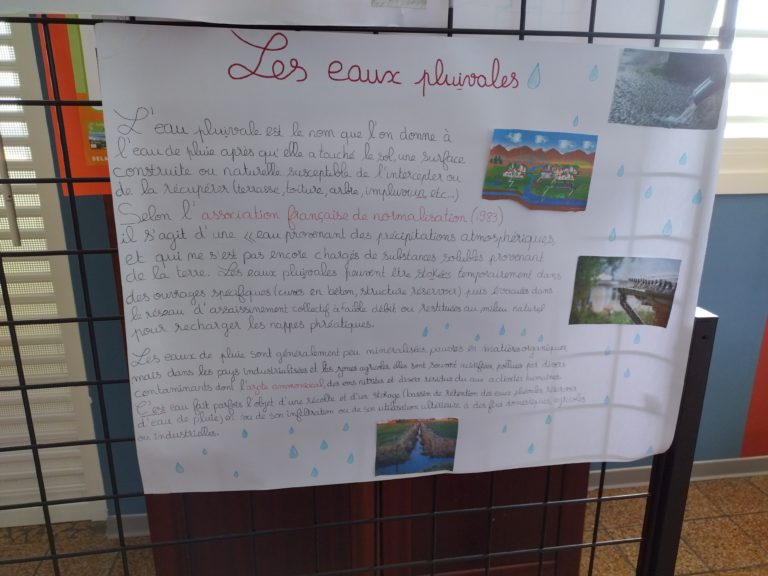 Les eaux pluivales
L'eau pluivale est le nom que l'on donne à
l'eau de pluie après qu'elle a touché le sol, une surface
construite ou naturelle susceptible de l'intercepter ou
de la récupérer (terrasse, toiture, arbre, impluvium, etc...)
Selon l'association française de normalisation (1983)
il s'agit d'une «eau provenant des précipitations atmosphériques,
et qui ne s'est pas encore chargés de substances solubles provenant
de la terre. Les eaux pluivales peuvent être stokées temporairement dans
des ouvrages spécifiques (cuves en béton, structure réservoir) puis évacuées dans
le réseau d'assainissement collectif à faible débit ou restituées au milieu naturel
pour recharger les nappes phréatiques.
Les eaux de pluie sont généralement peu minéralisées, pauvres en matières organiques,
mais dans les pays industrialisées et les zones agricoles elles sont souvent acidifiées, polluées par divers
contaminants dont l'azote ammoniacal, des ions nitrates et divers résidus du aux activités humaines.
C'est eau fait parfois l'objet d'une récolte et d'un stockage (bassin de rétention des eaux pluviales, réservoir
d'eau de pluie) en vu de son infiltration ou de son utilisation ultérieure à des fins domestiques, agricoles
ou industrielles.